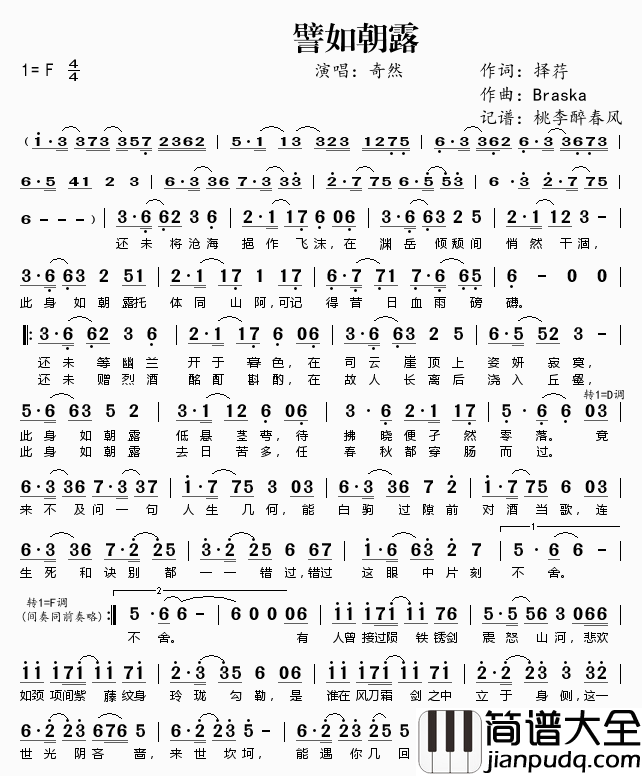 譬如朝露
1= F 4/4
演唱：奇然
作词：择荇
作曲：Braska
记谱：桃李醉春风
(i·3 373 357 2362 | 5·1 13 323 1275 | 6·3 362 6·3 3673 |
6·5 41 2 3 | 6·3 36 7·3 33 | 2·7 75 6·5 53 | 6 ·3 2·7 75
6 - - - ) | 3·6 62 3 6 | 2·1 17 6 06 | 3·6 63 2 5 | 2·1 12 3 - |
还未 将沧海 挹作 飞沫，在 渊岳 倾颓间 悄然 干涸，
3·6 63 2 51 | 2·1 17 1 17 | 6·7 71 7·6 65 | 6 - 0 0 |
此身 如朝露托 体同 山阿，可记 得昔 日血雨磅 礴。
3·6 62 3 6 | 2·1 17 6 06 | 3·6 63 2 5 | 6·5 52 3 - |
还未 等幽兰 开于 暮色，在 司云 崖顶上 姿妍 寂寞，
还未 赠烈酒 酩酊 斟酌，在 故人 长离后 浇入 丘壑，
转1=D调
5·6 63 5 2 | 3·1 12 6 06 | 3·6 2·1 17 | 5 · 6 6 03 |
此身 如朝露 低悬 茎萼，待 拂晓便孑然 零落。竞
此身 如朝露 去日 苦多，任 春秋都穿肠 而过。
6·3 36 7·3 37 | 1·7 75 3 03 | 6·3 36 7 2 | 1·7 75 5 03 |
来不及问一句 人生 几何，能 白驹 过隙前 对酒 当歌，连
6·3 36 7·2 25 | 3·2 25 6 67 | 1·6 63 2 7 | 5 · 6 6 - |
1
生死 和诀别 都一一 错过，错过 这眼 中片刻 不舍。
转1=F调
(间奏同前奏略)
2
5 ·6 6 - | 6 0 0 0 06 | ii i7i ii 76 | 5·5 56 3 066 |
不舍。 有 人曾 接过陨 铁锈剑 震怒 山河，悲欢
ii i7i ii 7i | 2·3 35 6 06 | ii i7i ii 7i | 2·2 23 3 32 |
如颈 项间紫 藤纹身 玲珑 勾勒，是 谁在 风刀霜 剑之中 立于 身侧，这一
6·2 23 676 5 | 6·2 23 5 5 |
世光 阴客 啬，来世 坎坷，能遇 你几 回
简谱大全
jianpudq.com